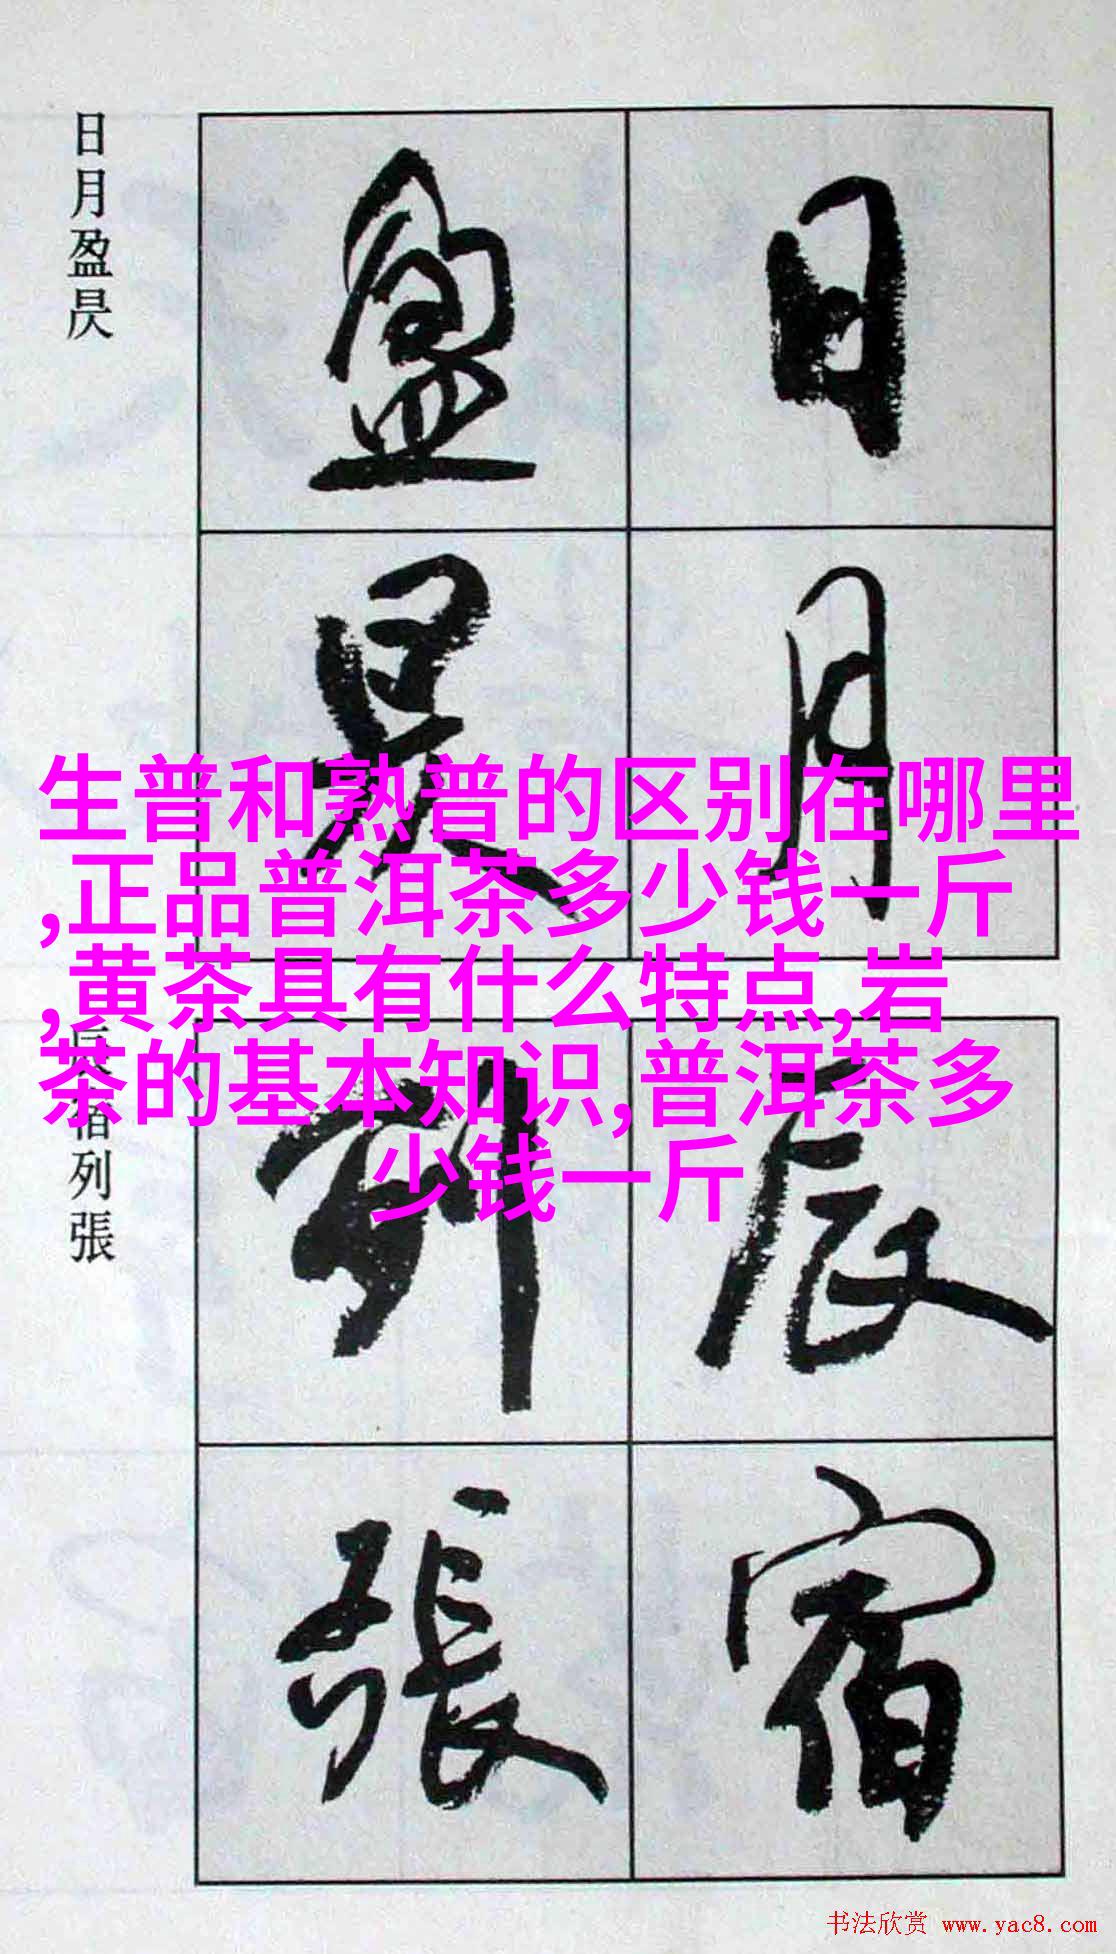 日月盈昃
日月
盈昃
生普和熟普的区别在哪里
,正品普洱茶多少钱一斤
,黄茶具有什么特点,岩
茶的基本知识,普洱茶多
少钱一斤
辰宿列張
辰宿
列張
书法欣赏 www.yac8.com